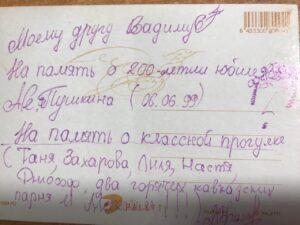 Моему другу Вадиму
На память о 200-летии юбилея
А.С. Пушкина (06.06.99)
На память о классной прогулке
(Таня, Захарова, Лиля, Настя,
Философ, два горячих кавказских
парня и